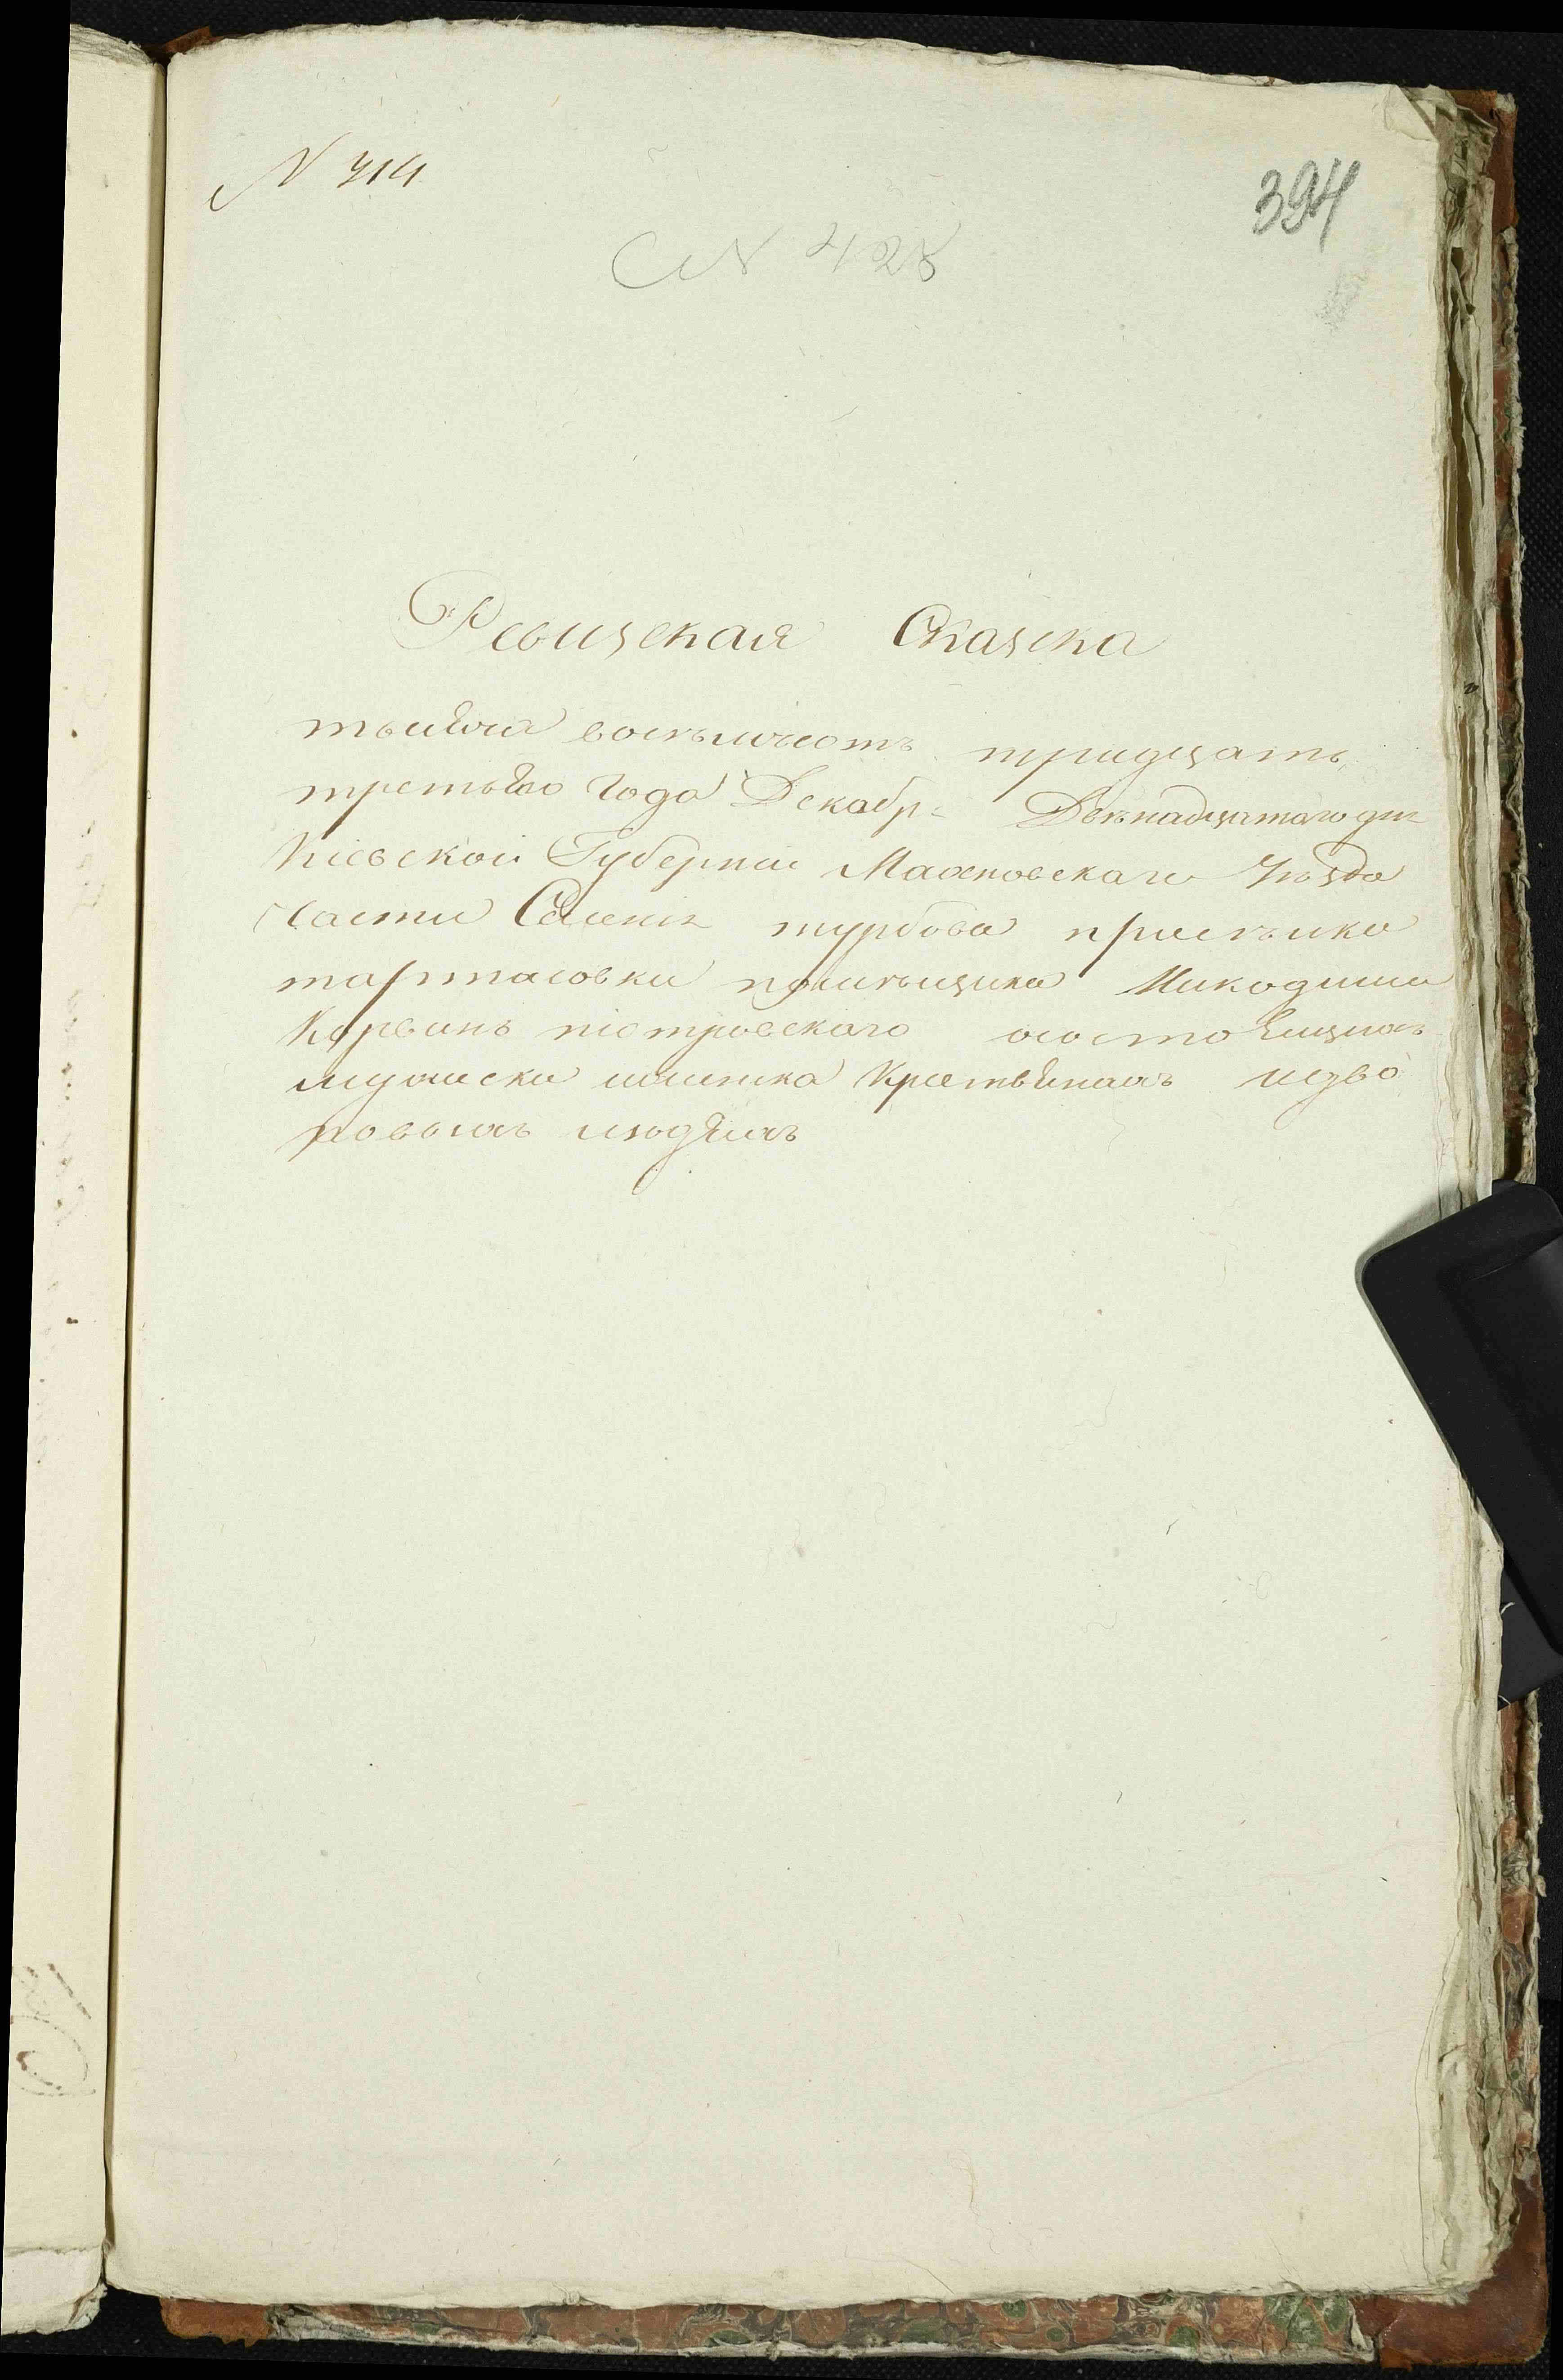 N 414
394
N 428
Ревизская Сказка
тысяча восемьсотъ тридцать
третьяго года Декабр. Двѣнадцатаго дня
Кіевской Губерніи Махновскаго Уѣзда
части Селенія турбова присѣлка
тартасовки помѣщика Никодима
Корвинъ піотровскаго осостоящихъ
мужеска полъ Крестьянахъ идво
ровыхъ людяхъ